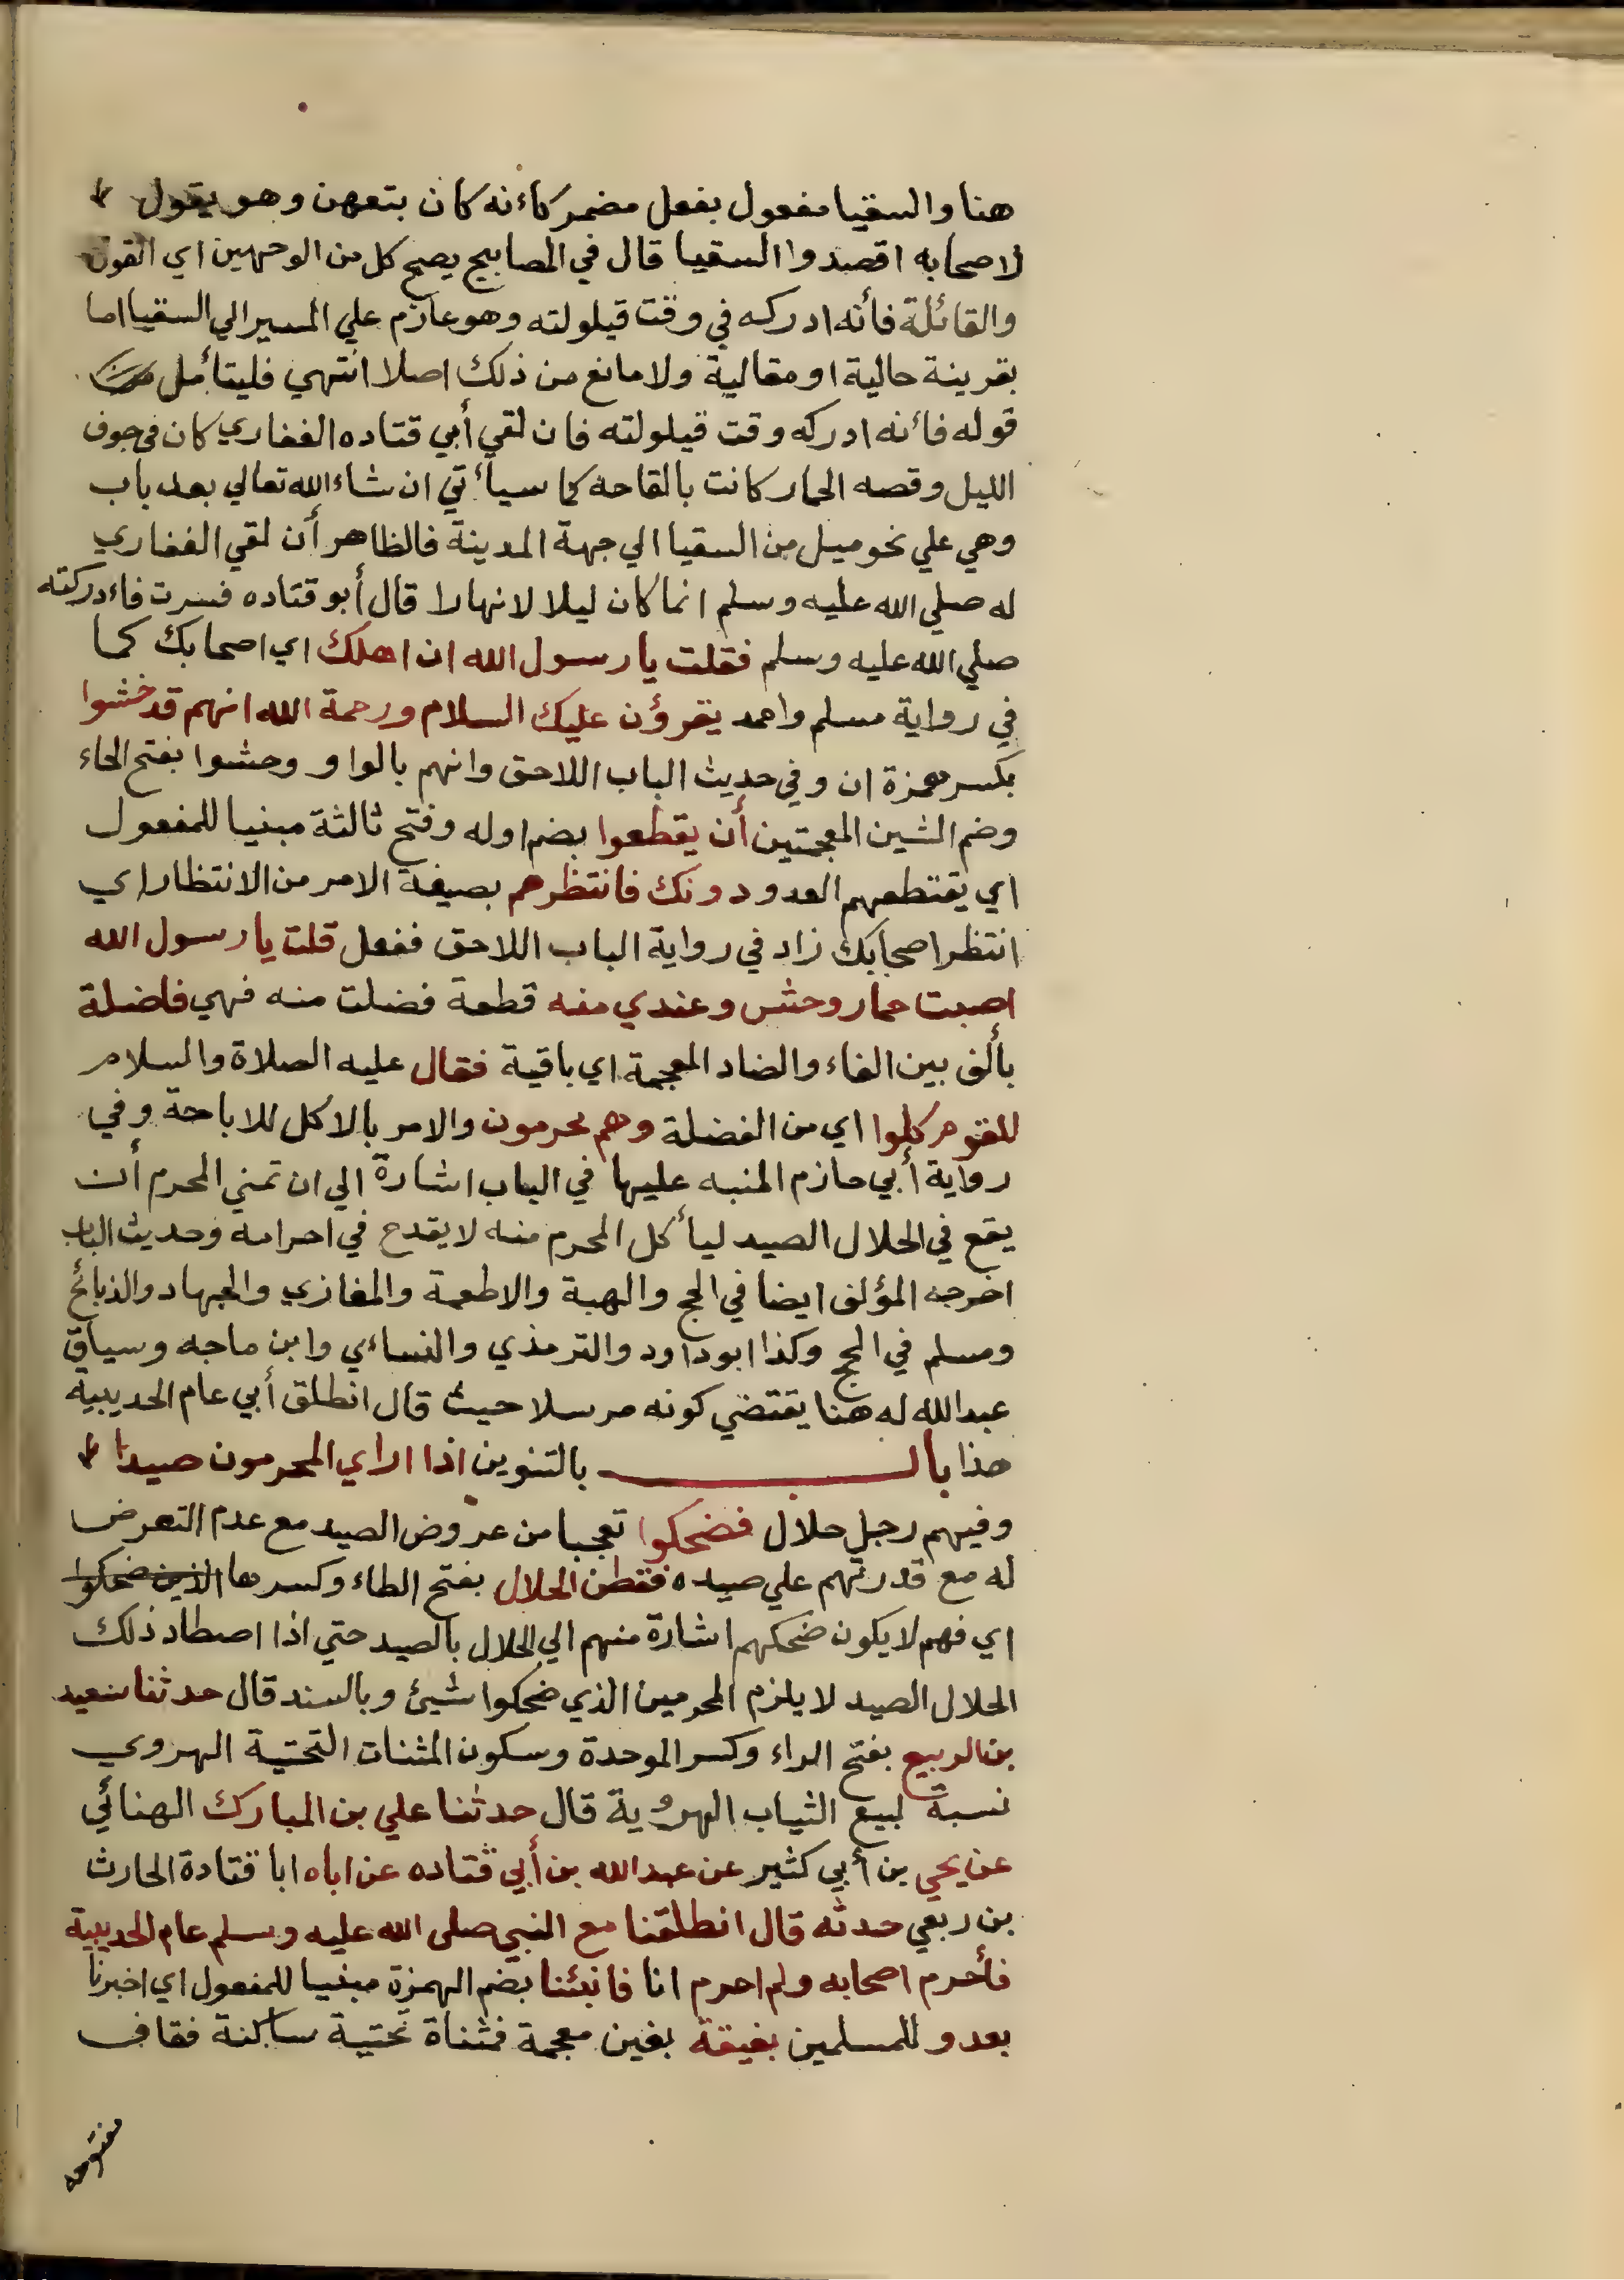 هنا والسقيا مفعول بفعل مضمر كاءنه كان بتعهن وهو يقول
لاصحابه اقصدوا السقيا قال في المصابيح يصح كل من الوجهين اي القول
والقائلة فأنه ادركه في وقت قيلولته وهو عازم علي المسير الي السقيا اما
بقرينة حالية او مقالية ولا مانع من ذلك اصلا انتهي فليتأمل
قوله فائنه ادركه وقت قيلولته فان لقي أبي قتاده الغفاري كان في جوف
الليل وقصه الحمار كانت بالقاحه كما سيأتي ان شاء الله تعالي بعد باب
وهي علي نحو ميل من السقيا الي جهة المدينة فالظاهر أن لقي الغفاري
له صلي الله عليه وسلم انما كان ليلا لا نهارا قال أبو قتاده فسرت فاءدركته
صلي الله عليه وسلم فقلت يا رسول الله ان اهلك اي اصحابك كما
في رواية مسلم واحمد يقرؤن عليك السلام ورحمة الله انهم قد خشوا
بكسر همزة ان وفي حديث الباب اللاحق وانهم بالواو وخشوا بفتح الخاء
وضم الشين المعجمتين أن يقطعوا بضم اوله وفتح ثالثة مبنيا للمفعول
اي يقتطعهم العدو دونك فانتظرهم بصيغة الامر من الانتظار اي
انتظر اصحابك زاد في رواية الباب اللاحق ففعل قلت يا رسول الله
اصبت حمار وحش وعندي منه قطعة فضلت منه فهي فاضلة
بألف بين الفاء والضاد المعجمة اي باقية فقال عليه الصلاة والسلام
للقوم كلوا اي من الفضلة وهم محرمون والامر بالاكل للاباحة وفي
رواية أبي حازم المنبه عليها في الباب اشارة الي ان تمني المحرم أن
يقع في الحلال الصيد ليأكل المحرم منه لا يقدح في احرامه وحديث الباب
اخرجه المؤلف ايضا في الحج والهبة والاطعمة والمغازي والجهاد والذبائح
ومسلم في الحج وكذا ابو داود والترمذي والنساءي وابن ماجه وسياق
عبد الله له هنا يقتضي كونه مرسلا حيث قال انطلق أبي عام الحديبية
هذا باب بالتنوين اذا اراي المحرمون صيدا
وفيهم رجل حلال فضحكوا تعجبا من عروض الصيد مع عدم التعرض
له مع قدرتهم علي صيده ففطن الحلال بفتح الطاء وكسرها الذين ضحكوا
اي فهم لا يكون ضحكهم اشارة منهم الي الحلال بالصيد حتي اذا اصطاد ذلك
الحلال الصيد لا يلزم المحرمين الذي ضحكوا شيئ وبالسند قال حدثنا سعيد
بن الربيع بفتح الراء وكسر الموحدة وسكون المثنات التحتية الهروي
نسبة لبيع الثياب الهروية قال حدثنا علي بن المبارك الهنائي
عن يحي بن أبي كثير عن عبد الله بن أبي قتاده عن اباه ابا قتادة الحارث
بن ربعي حدثه قال انطلقنا مع النبي صلى الله عليه وسلم عام الحديبية
فأحرم اصحابه ولم احرم انا فانبئنا بضم الهمزة مبنيا للمفعول اي اخبرنا
بعدو للمسلمين بغيقة بغين معجمة فمثناة تحتية ساكنة فقاف
مفتوحه